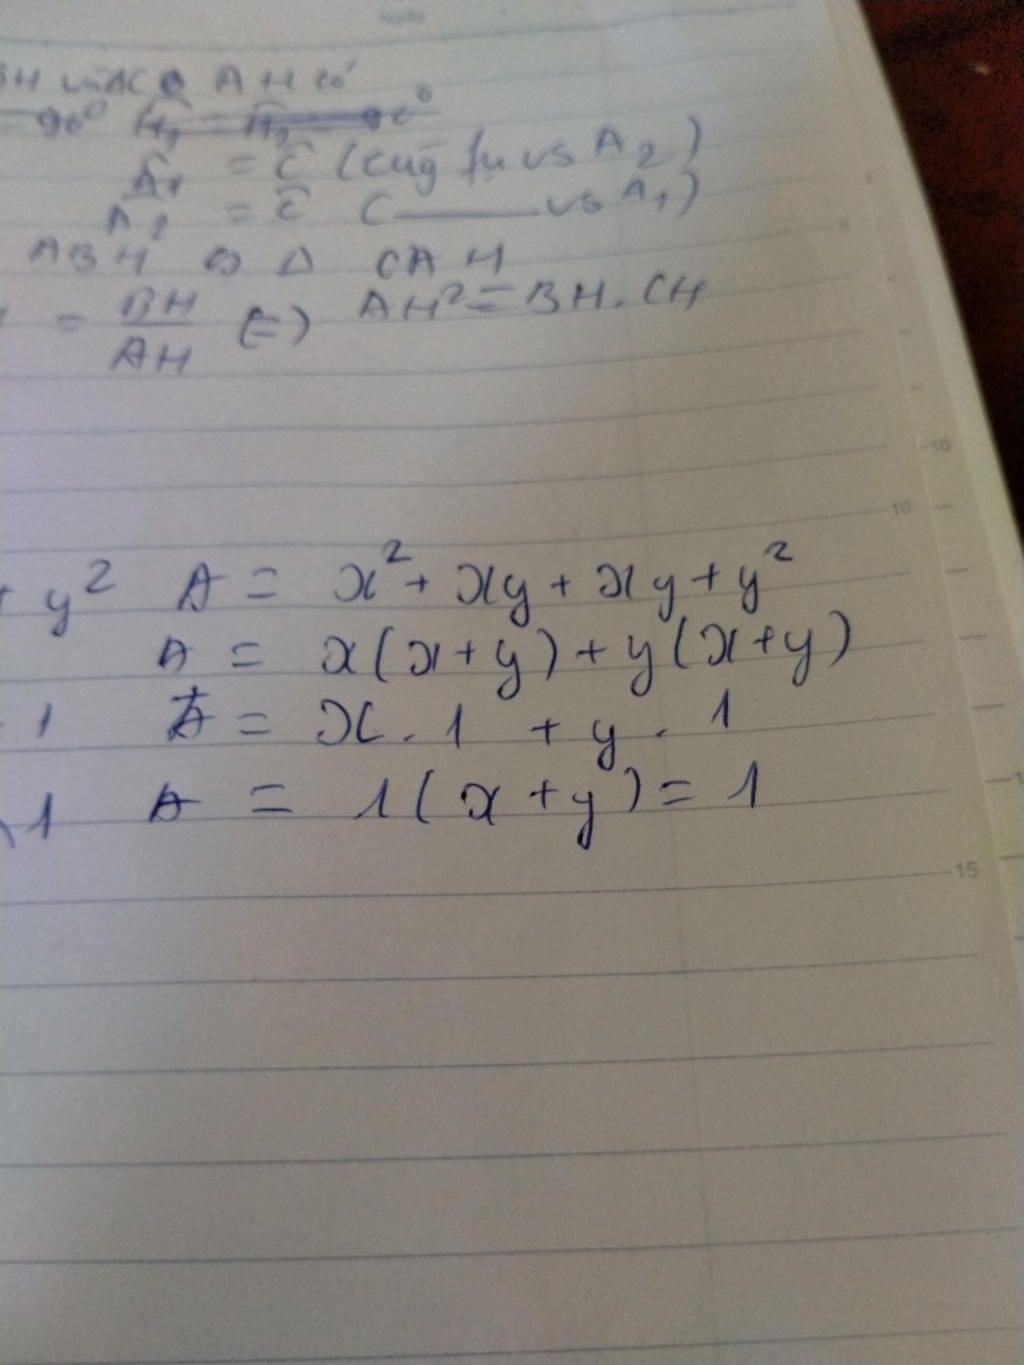 BH và AC AH có
= 90⁰ H₁ = H₂ = 90⁰
A₁ = C (cùg fụ vs A₂)
A₂ = C ( ——— vs A₁)
ABH ∽ Δ CAH
= BH/AH (=) AH² = BH. CH
10
10
+ y² A = x² + xy + xy + y²
A = x(x+y) + y(x+y)
1 A = x. 1 + y. 1
1 A = 1(x+y) = 1
15